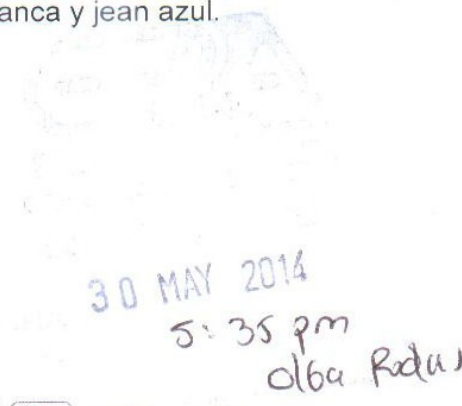 anca y jean azul.
30 MAY 2014
5:35 pm
Olga